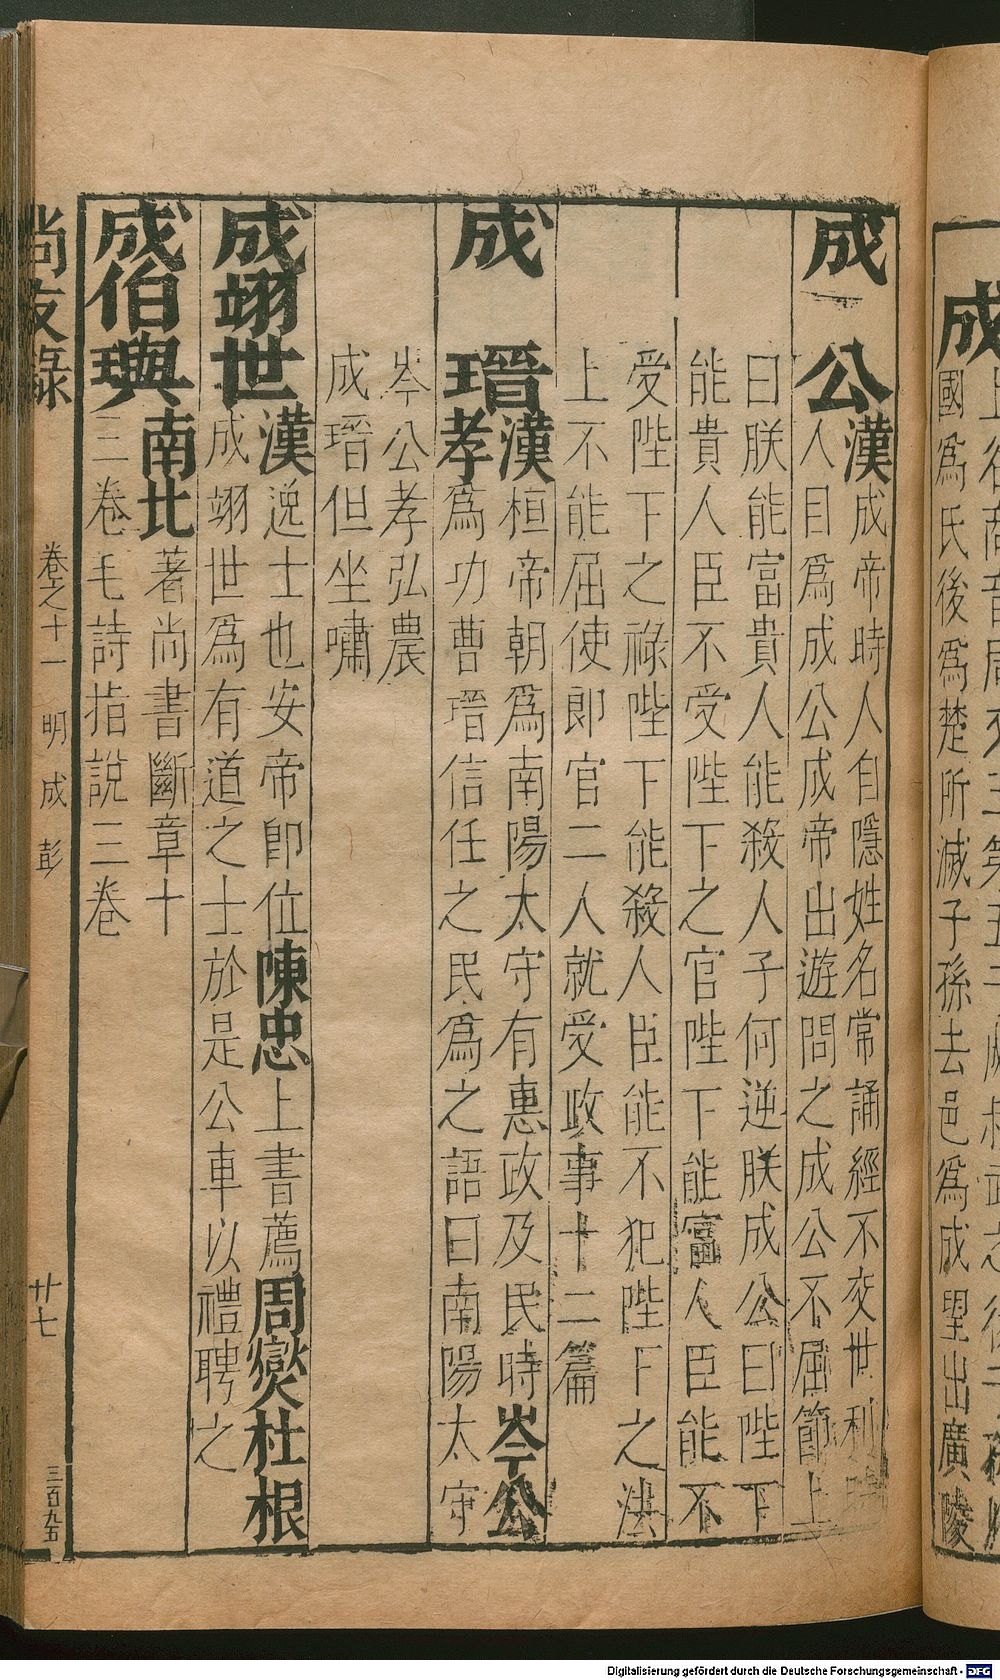 成
國爲氏後爲楚所滅子孫去邑爲成望出廣陵
成　公漢成帝時人自隱姓名常誦經不交世利時
人目爲成公成帝出遊問之成公不屈節上
曰朕能富貴人能殺人子何逆朕成公曰陛下
能貴人臣不受陛下之官陛下能富人臣能不
受陛下之祿陛下能殺人臣能不犯陛下之法
上不能屈使郎官二人就受政事十二篇
成　瑨漢桓帝朝爲南陽太守有惠政及民時岑公
孝爲功曹瑨信任之民爲之語曰南陽太守
岑公孝弘農
成瑨但坐嘯
成翊世漢逸士也安帝即位陳忠上書薦周燮杜根
成翊世爲有道之士於是公車以禮聘之
成伯璵南北著尚書斷章十
三卷毛詩指說三卷
尚友錄　卷之十一　明　成　彭　廿七　三百九五
Digitalisierung gefördert durch die Deutsche Forschungsgemeinschaft - DFG